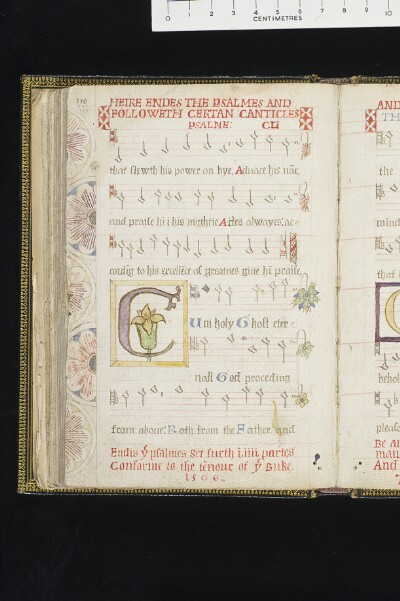 0 1 2 3 4 5 6 7 8 9 10
CENTIMETRES
HEIRE ENDES THE PSALMES AND
FOLLOWETH CERTAN CANTICLES
PSALME: CLI
that shewth his power on hye, Advace his nāe,
and praise hī ī his mightie Actes alwayes: ac=
cordīg to his excellēcē of greatnes give hī praise,
Cum holy Ghost eter=
nall God proceding
from above: Both from the Father and
Endis yͤ psalmes set furth ī. iiii. partes
Conforme to the tenour of yͤ Buke.
1566.
AND
TH
the
mind
that
behol
pleas
Be
And